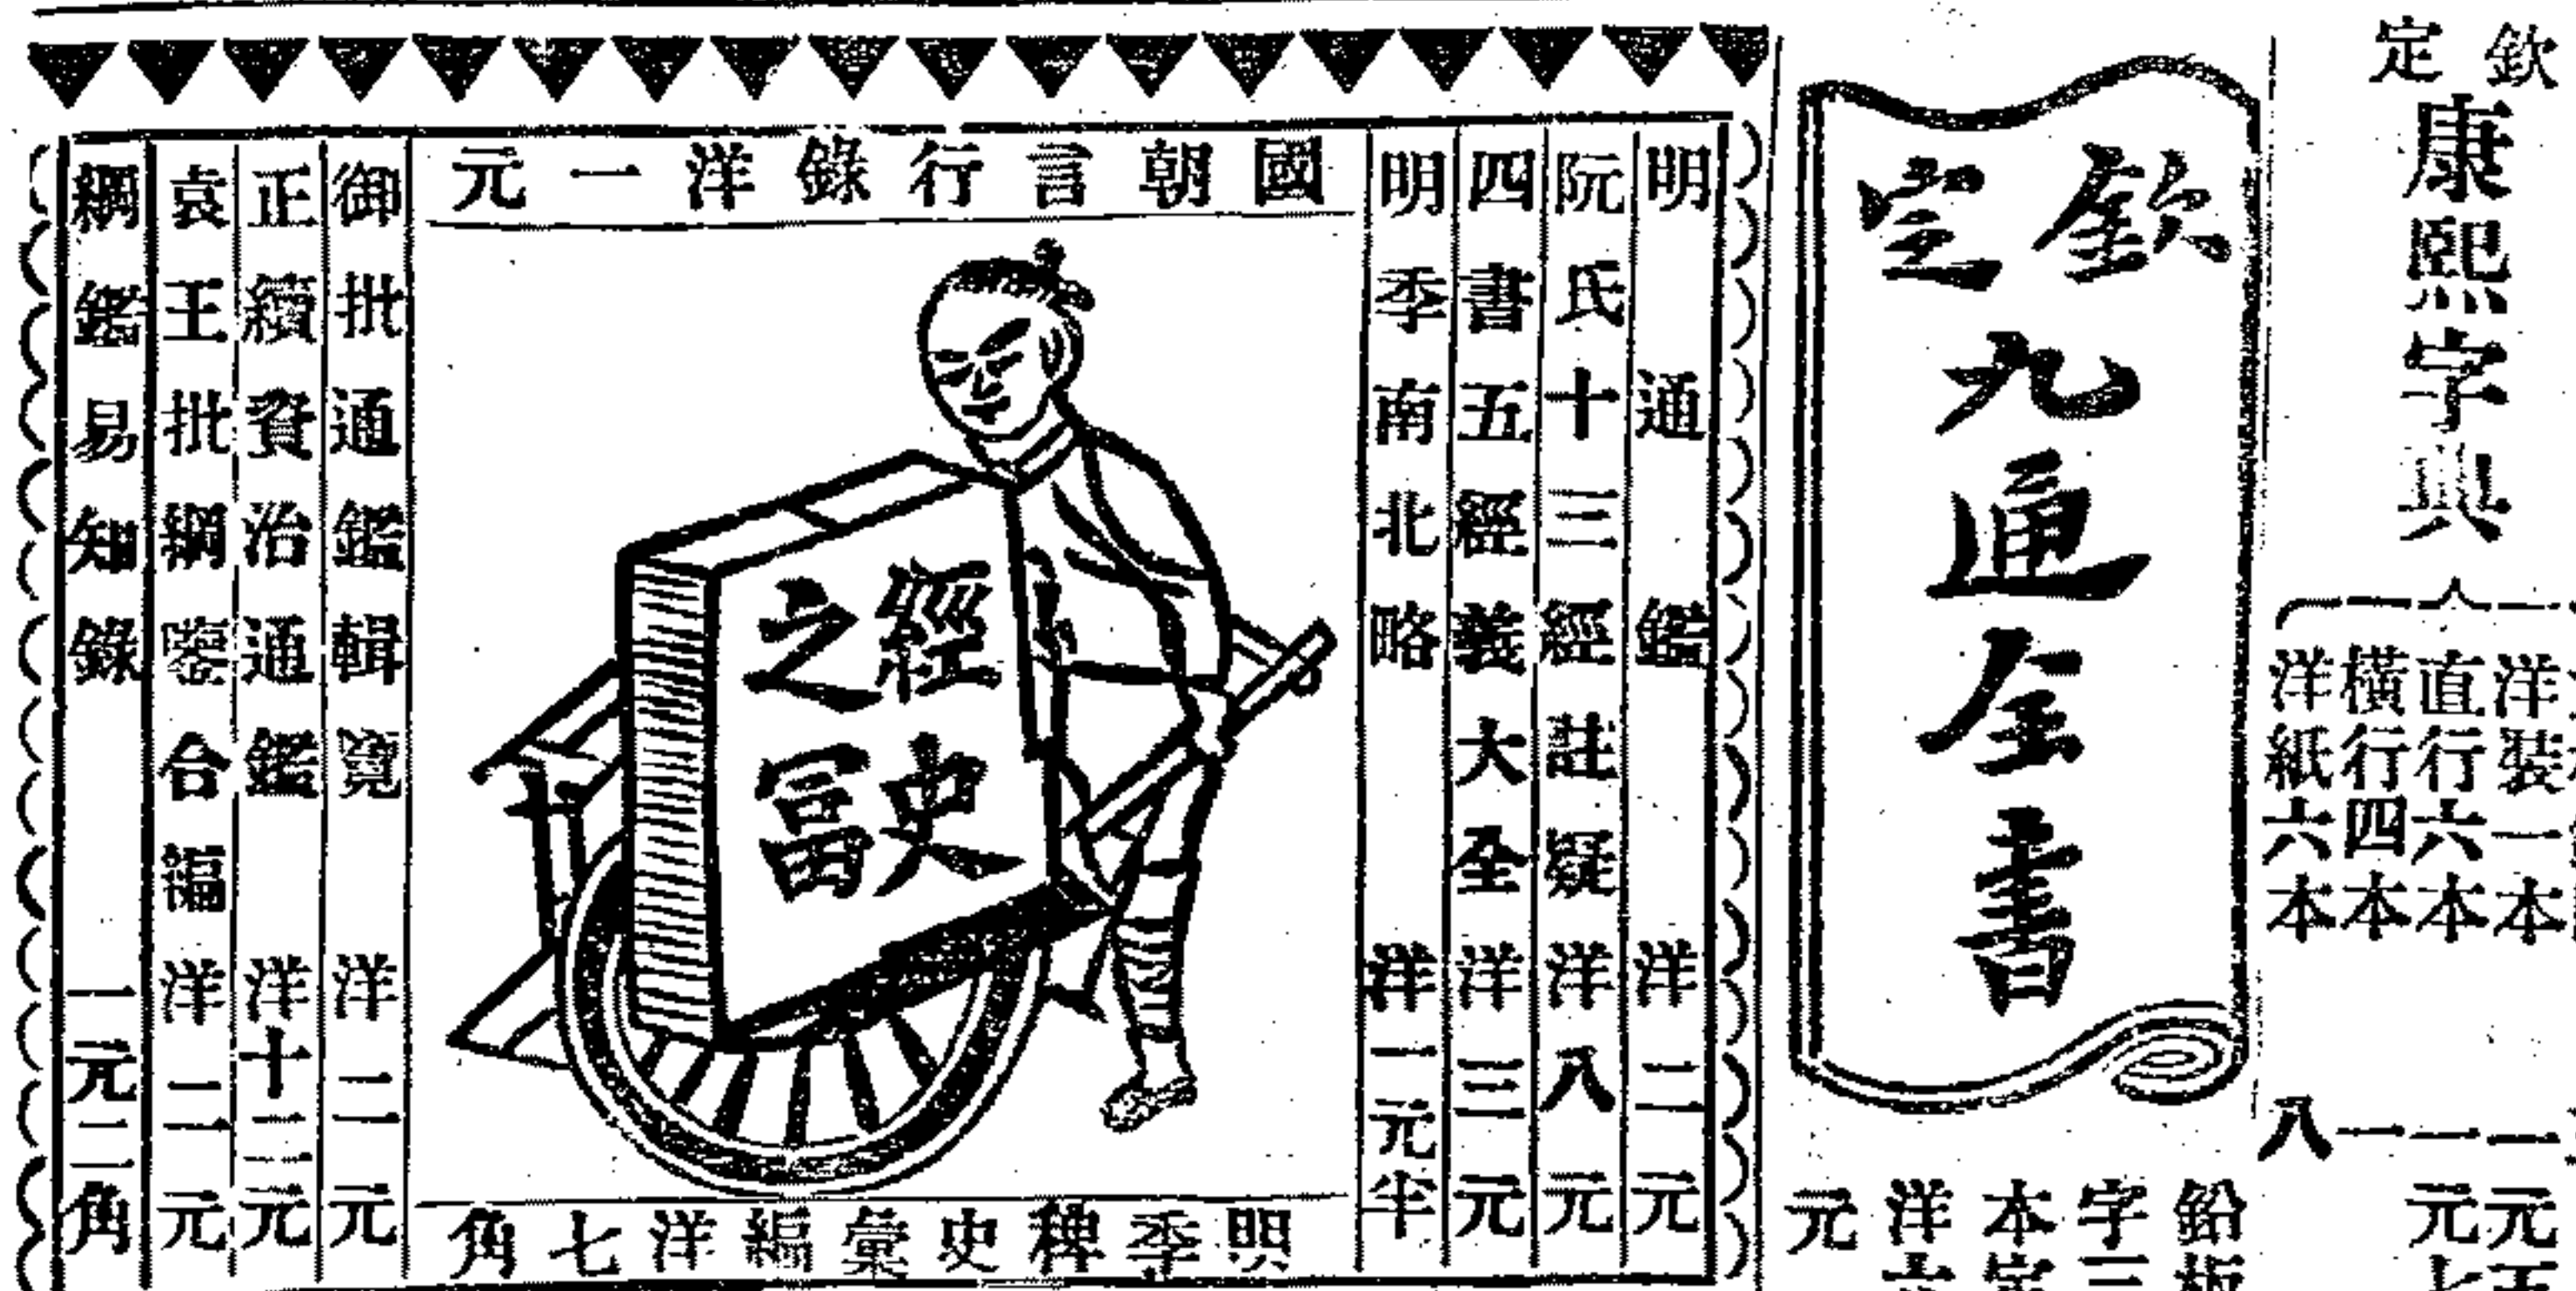 欽定
康熙字典
洋裝一本 一元
直行六本 一元
橫行四本 一
洋紙六本 八
欽定
九通全書
鉛板
字三
本
洋
元
明通鑑 洋二元
阮氏十三經註疑 洋八元
四書五經義大全 洋三元
明季南北略 洋一元半
國朝言行錄洋一元
經史
之富
明季稗史彙編洋七角
御批通鑑輯覽 洋二元
正續資治通鑑 洋十三元
袁王批綱鑑合編 洋二元
綱鑑易知錄 一元二角